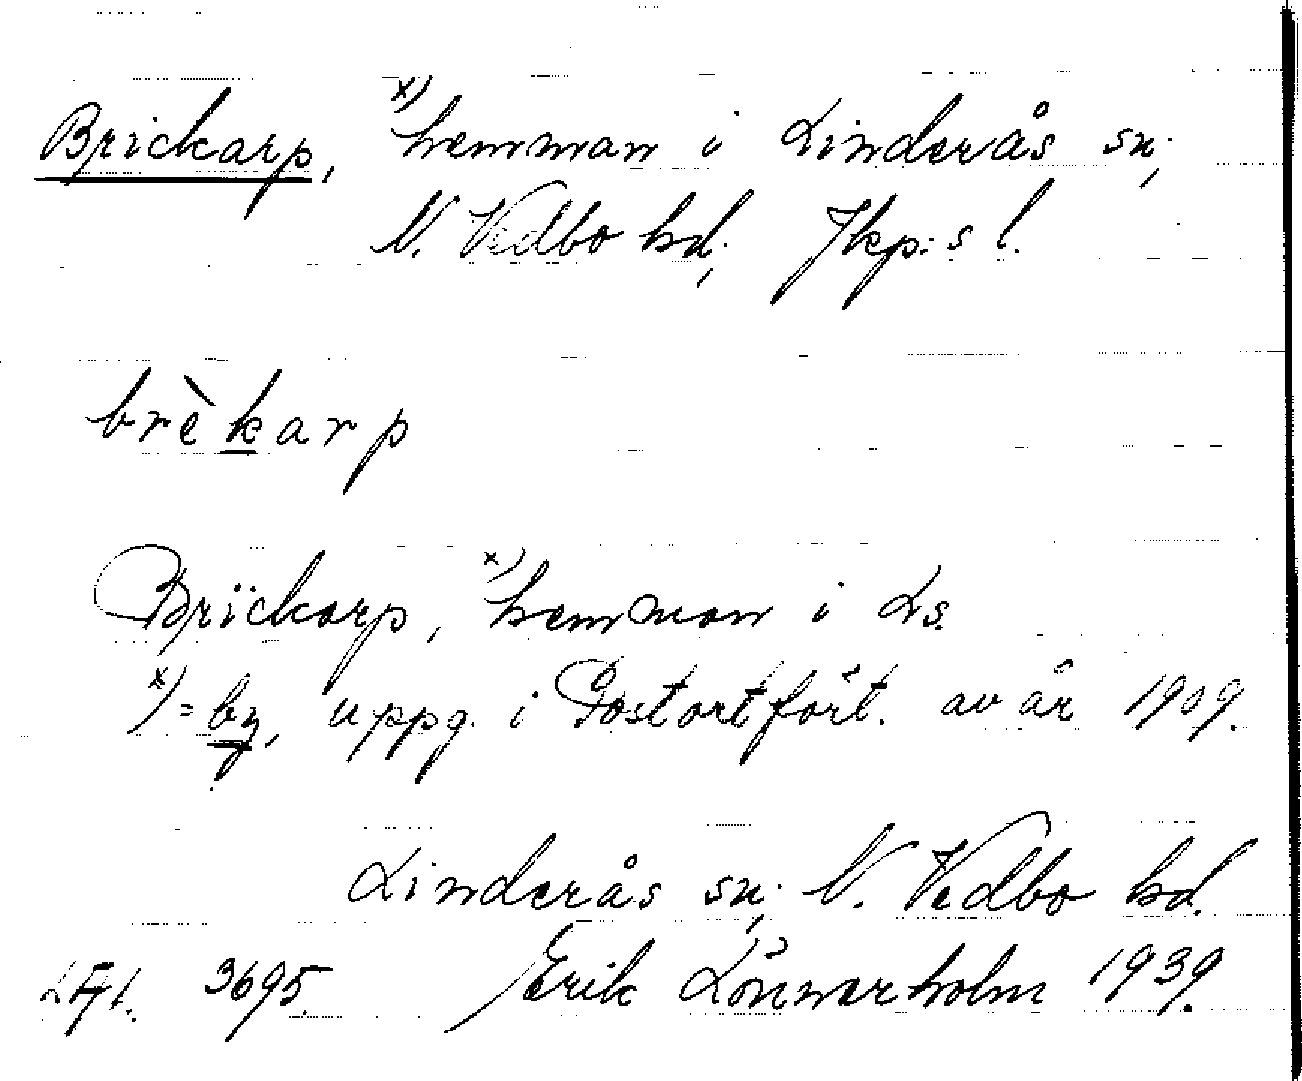 Brickarp, x) hemman i Linderås sn.,
N. Vedbo hd., Jkp:s l.
brèkarp
Brickarp, x) hemman i Ls.
x) = by, uppg. i Postortfört. av år 1909.
Linderås sn., N. Vedbo hd.
3695. Erik Lönnerholm 1939.